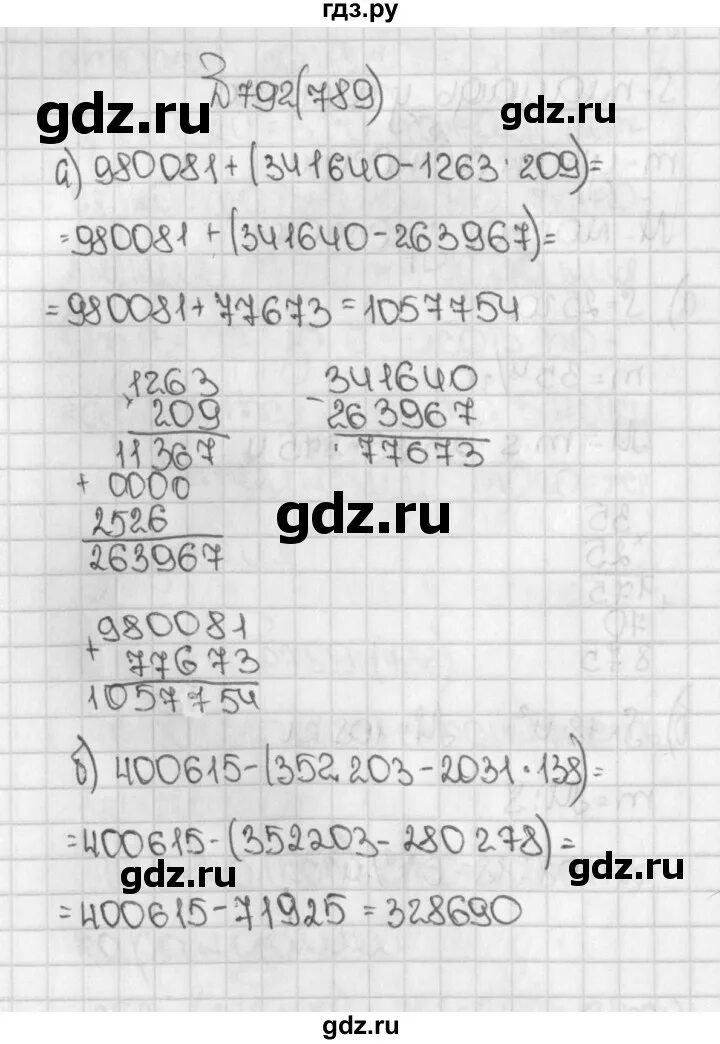 гдз.ру
№792(789)
gdz.ru
gdz.ru
а) 980081+(341640-1263·209)=
=980081+(341640-263967)=
=980081+77673=1057754
1263
× 209
11367
+ 0000
2526
263967
341640
- 263967
77673
gdz.ru
980081
+ 77673
1057754
б) 400615-(352203-2031·138)=
=400615-(352203-280278)=
gdz.ru
gdz.ru
=400615-71925=328690
gdz.ru